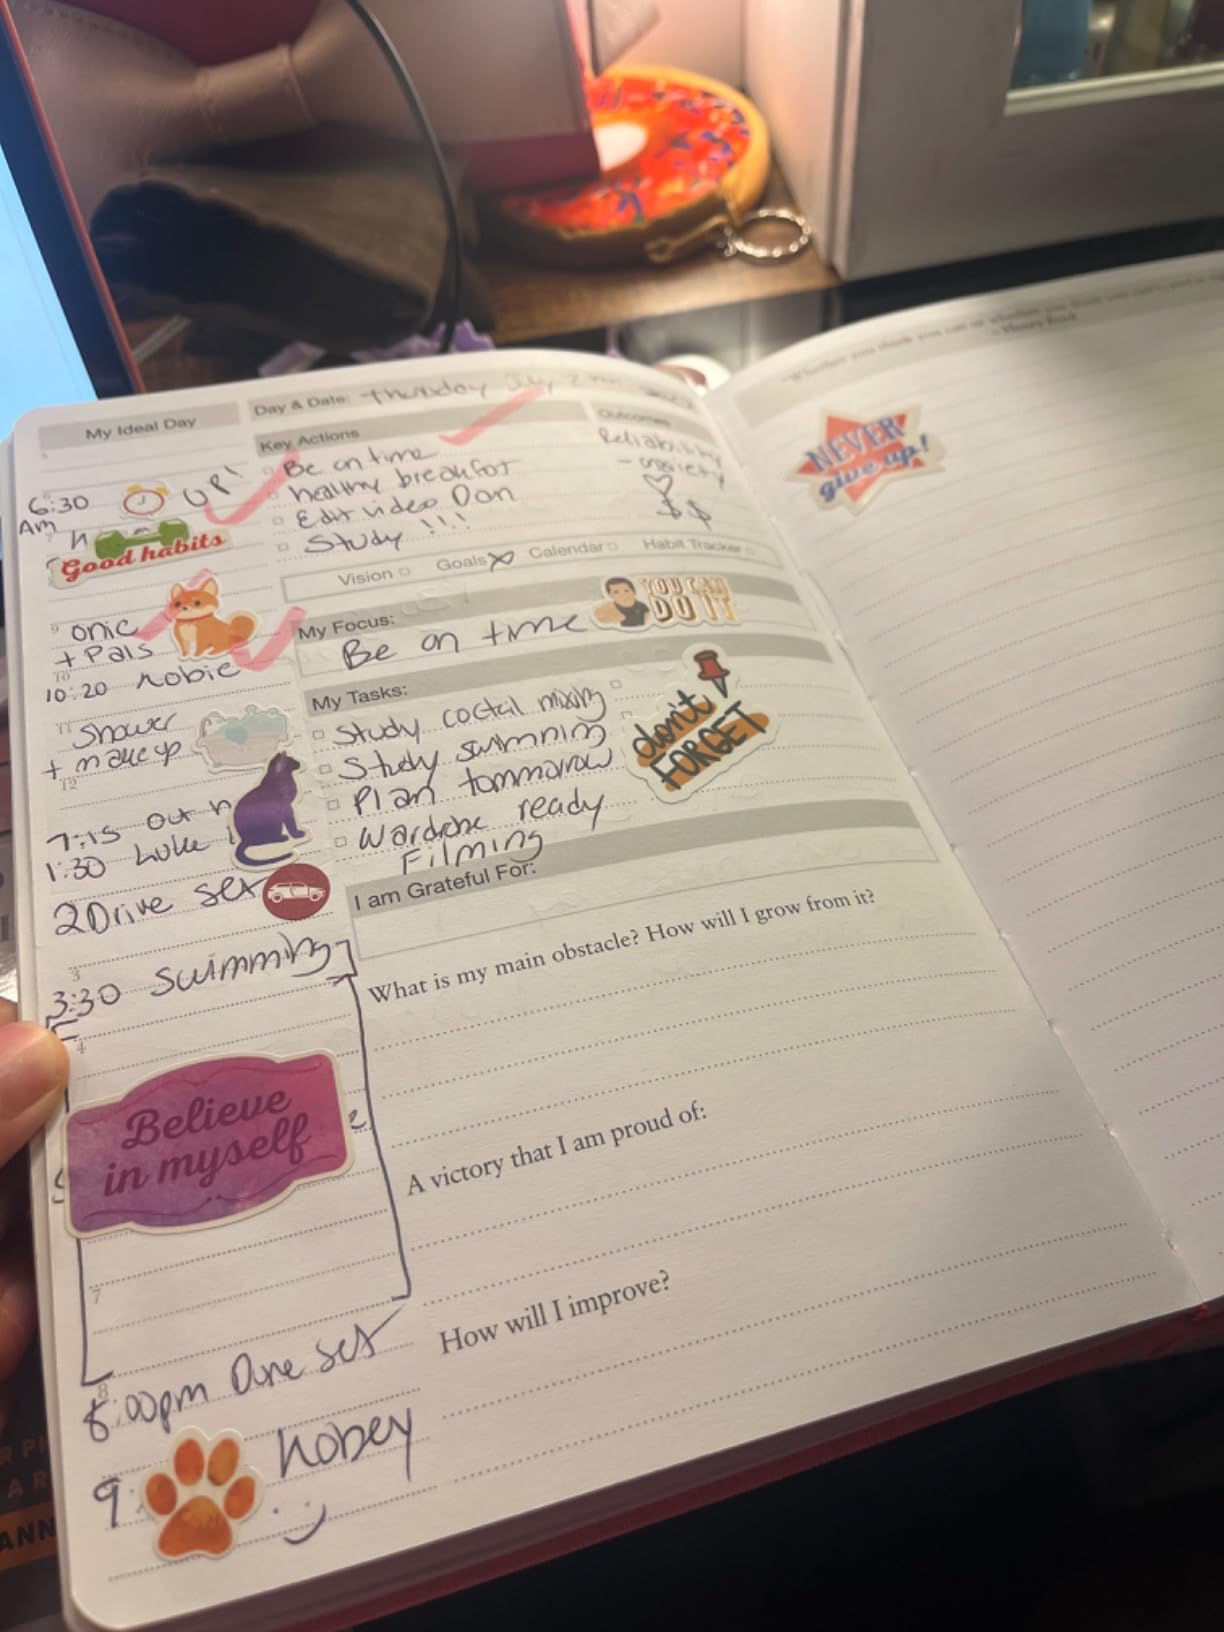 "Whether you think you can or whether you think you can't, you're
- Henry Ford
NEVER
give up!
My Ideal Day
Day & Date: Thursday July 2
Key Actions
Outcomes
Be on time
Reliability
healthy breakfast
- anxiety
Edit video Dan
$$
Study !!!
Vision Goals Calendar Habit Tracker
My Focus:
Be on time
YOU CAN
DO IT
My Tasks:
Study coctail mixing
Study swimming
Plan tommorow
Wardrobe ready
Filming
don't
FORGET
I am Grateful For:
What is my main obstacle? How will I grow from it?
A victory that I am proud of:
How will I improve?
6:30
Am
UP!
7
Good habits
9
onic
+ Pals
10
10:20
11
Shower
+ makeup
12
out
1:30
2 Drive set
3
3:30 Swimming
4
Believe
in myself
7
8
8:00pm
9: